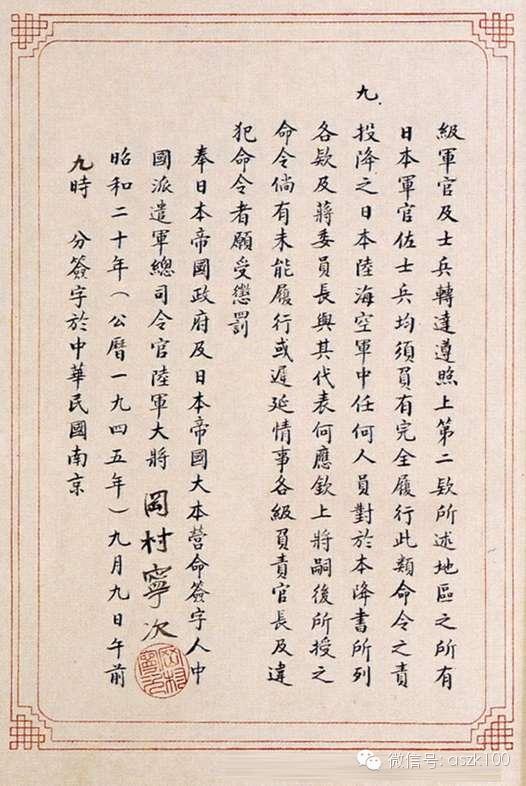 級軍官及士兵轉達遵照上第二欵所述地區之所有
日本軍官佐士兵均須負有完全履行此類命令之責
九、投降之日本陸海空軍中任何人員對於本降書所列
各欵及蔣委員長與其代表何應欽上將嗣後所授之
命令倘有未能履行或遲延情事各級負責官長及違
犯命令者願受懲罰
奉日本帝國政府及日本帝國大本營命簽字人中
國派遣軍總司令官陸軍大將 岡村寧次
昭和二十年(公曆一九四五年)九月九日午前
九時 分簽字於中華民國南京
岡村寧次
微信号: aszk100